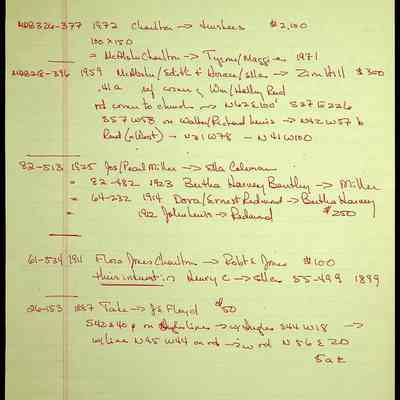 MDB326-377 1972 Charlton → Hughes $2,100
100 X 150
= McAdoo Charlton → Tyrone/Maggie 1971
MDB28-396 1959 McAdoo/Edith & Horace/Ella → Zion Hill $300
.41a w/ corner Wm/Halley Rend
rd corner to church → N62E100' S27E226
S57W58 on Walter/Richard Lewis → N42W57 to
Rend (alost) → N31W78 - N41W100
82-513 1925 Jos/Pearl Miller → Etta Coleman
= 82-482 1923 Bertha Harvey Bentley → Miller
= 64-232 1914 Dora/Ernest Redmond → Bertha Harvey
= 1912 John Lewis → Redmond $250
61-534 1911 Flora Jones Charlton → Robt E Jones $100
their interest in Henry C → Ellen 55-499 1899
26-153 1887 Tate → JS Floyd $50
S42E40 p on lines → w S44W18 →
w/line N45W44 on rd → w rd N56E20
5a ±